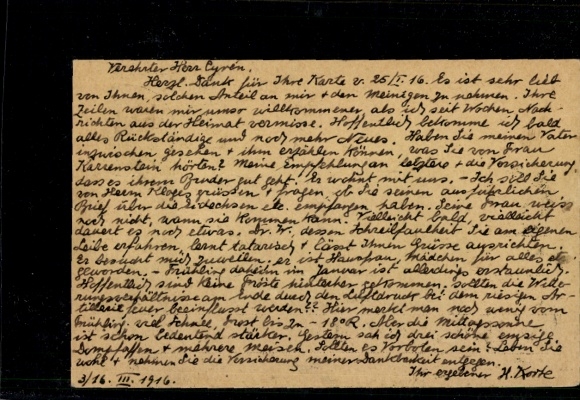 Verehrter Herr Cyrén.
Herzl. Dank für Ihre Karte v. 25/I. 16. Es ist sehr lieb
von Ihnen, solchen Anteil an mir + den Meinigen zu nehmen. Ihre
Zeilen waren mir umso willkommener, als ich seit Wochen Nach-
richten aus der Heimat vermisse. Hoffentlich bekomme ich bald
alles Rückständige und noch mehr Neues. Haben Sie meinen Vater
inzwischen gesehen + ihm erzählen können was Sie von Frau
Karrenstein hörten? Meine Empfehlung an letztere + die Versicherung
dass es ihrem Bruder gut geht. Er wohnt mit uns. - Ich soll Sie
von Herrn Kloger grüssen + fragen, ob Sie seinen ausführlichen
Brief über die Eidechsen etc. empfangen haben. Seine Frau weiss
noch nicht, wann sie kommen kann. Vielleicht bald, vielleicht
dauert es noch etwas. Dr. W. dessen Schreibfaulheit Sie am eigenen
Leibe erfahren, lernt tatarisch + lässt Ihnen Grüsse ausrichten.
Er besucht mich zuweilen, er ist Hausfrau, Mädchen für alles
geworden. - Frühling daheim im Januar ist allerdings erstaunlich.
Hoffentlich sind keine Fröste hinterher gekommen. Sollten die Witte-
rungsverhältnisse am Ende durch den Luftdruck bei dem riesigen Ar-
tillerie feuer beeinflusst werden?? Hier merkt man noch wenig vom
Frühling. viel Schnee, Frost bis zu - 18°R. Aber die Mittagssonne
ist schon bedeutend stärker. Gestern sah ich drei schöne emsige
Dompfaffen + mehrere Meisen. Sollten es Vorboten sein? Leben Sie
wohl + nehmen Sie die Versicherung meiner Dankbarkeit entgegen.
Ihr ergebener H. Korte
3/16. III. 1916.